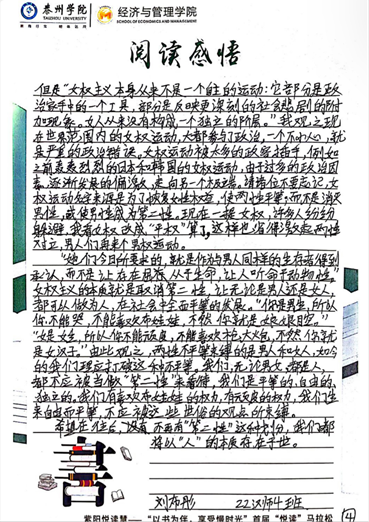 泰州学院
TAIZHOU UNIVERSITY
经济与管理学院
SCHOOL OF ECONOMICS AND MANAGEMENT
阅读感悟
但是“女权主义本身从来不是一个自主的运动：它部分是政
治家手中的一个工具，部分是反映更深刻的社会悲剧的附
加现象。女人从来没有构成一个独立的阶层。”我观之现
在世界范围内的女权运动，大都参与了政治，一个不小心，就
是严重的政治错误。女权运动被太多的政客插手，例如
之前轰轰烈烈的日本和韩国的女权运动，由于过多的政治因
素，逐渐发展的偏激，走向另一个极端。请诸位不要忘记，女
权运动始来源是为了恢复女性权益，使两性平等，而不是消灭
男性，或使男性成为第二性。现在一提女权，许多人纷纷
躲避，我看女权改成“平权”算了，这样也省得激起两性
对立，男人们再来个男权运动。
“她们今日所要求的，就是作为与男人同样的生存者得到
承认，而不是让存在屈居从于生命，让人听命于动物性。”
女权主义的本质就是取消第二性，让无论是男人还是女人，
都可以做为人，在社会中全面平等的发展。“你是男生，所以
你不能哭，不能喜欢布娃娃，不然你就是娘娘腔。”
“女生，所以你不能顽皮，不能喜欢手枪大炮，不然你就
是女汉子。”由此观之，两性不平等束缚的是男人和女人，如今
的我们理应打破这种不平等。我们，无论男女都是人，
都不应被当做“第二性”来看待，我们是平等的，自由的，
独立的。我们有喜欢布娃娃的权力，有顽皮的权力，我们生
来自由而平等，不应被这些世俗的观点所束缚。
希望在往后，没有不再有“第二性”这种身份，我们都
将以“人”的本质存在于世。
刘布彤 22汉师4班
紫阳悦读慧——“以书为伴，享受慢时光”首届“悦读”马拉松
4